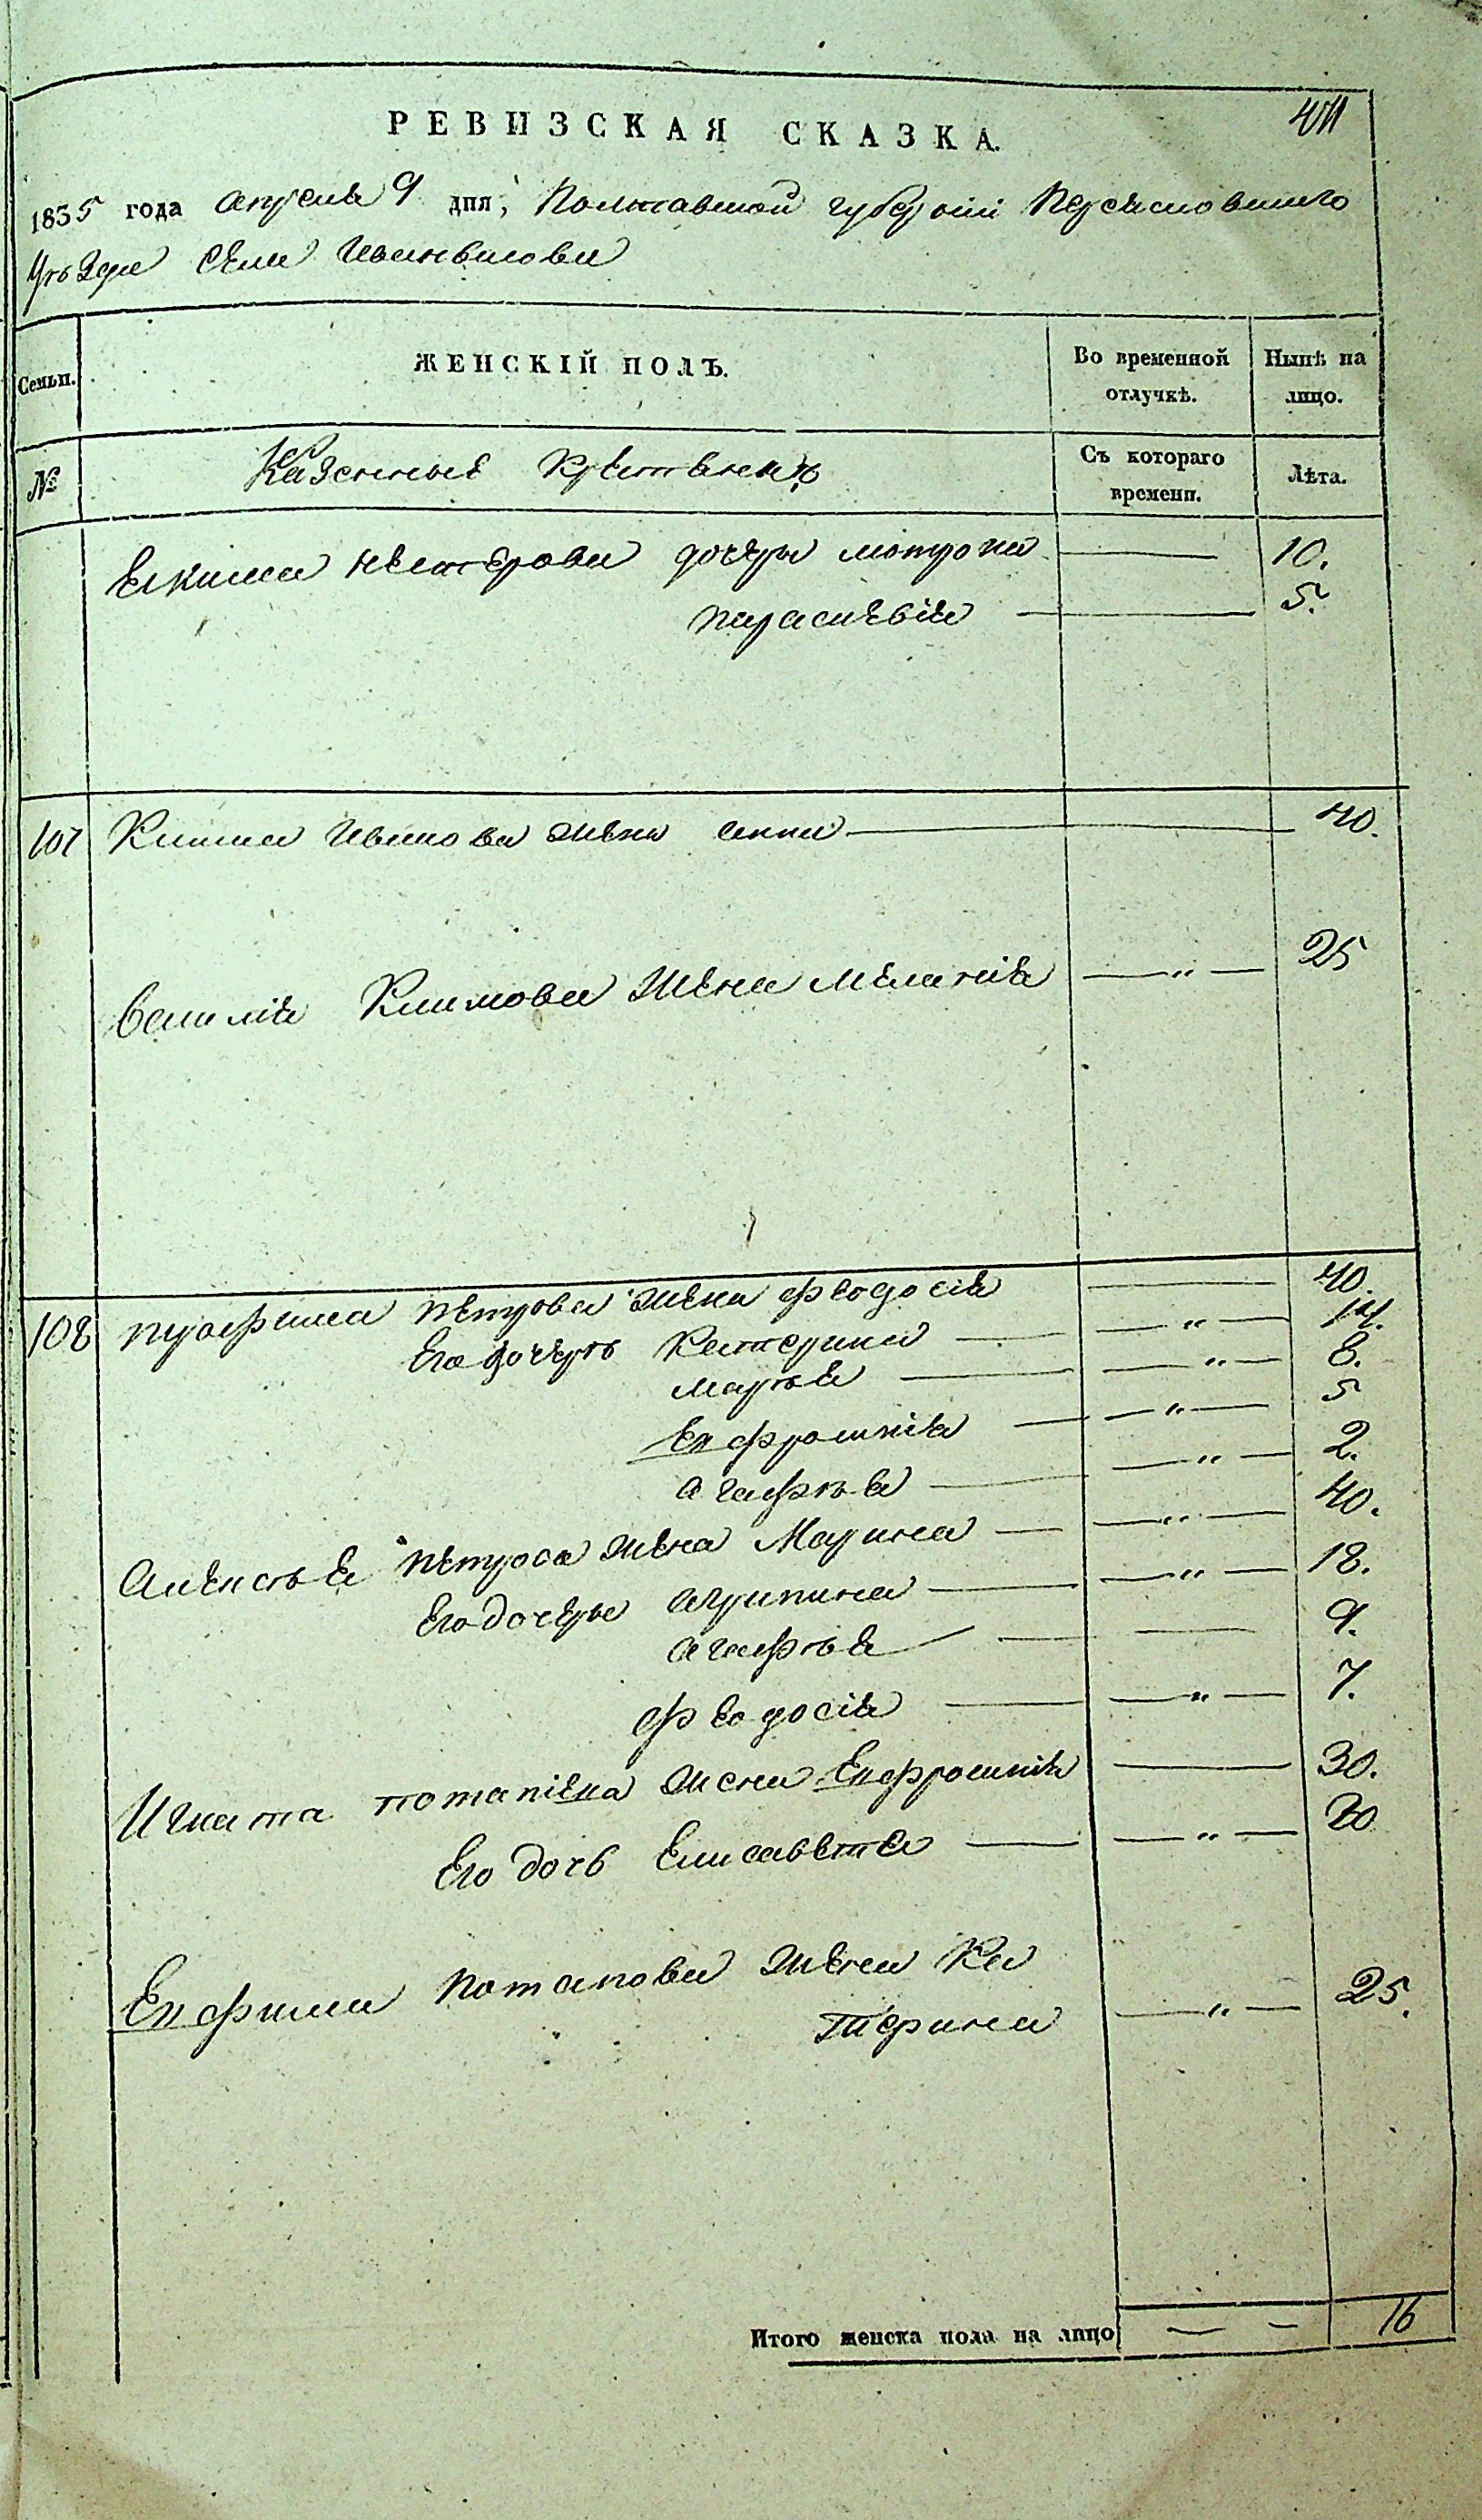 411
РЕВИЗСКАЯ СКАЗКА.
1835 года апреля 9 дня, Полтавской губернии Переясловского
Уезда Села Иванькова
Семьи. ЖЕНСКІЙ ПОЛЪ. Во временной отлучкѣ. Нынѣ на лицо.
№ Казенные Съ котораго времени. Лѣта.
Екима Нестерова дочери мотрона 10.
параскевія 5.
107 Клима Иванова жена анна 40.
василія Климова жена меланія 25
108 трофима петрова жена феодосія 40.
Его дочерь Катерина 14.
марья 8.
Ефросинія 5
агафья 2.
алексея петрова жена Марина 40.
Его дочери агрипина 18.
агафья 9.
феодосія 7.
Игната потапіева жена Ефросинія 30.
Его дочь Елисавета 20
Ефима потапова жена Ка
терина 25.
Итого женска пола на лицо 16